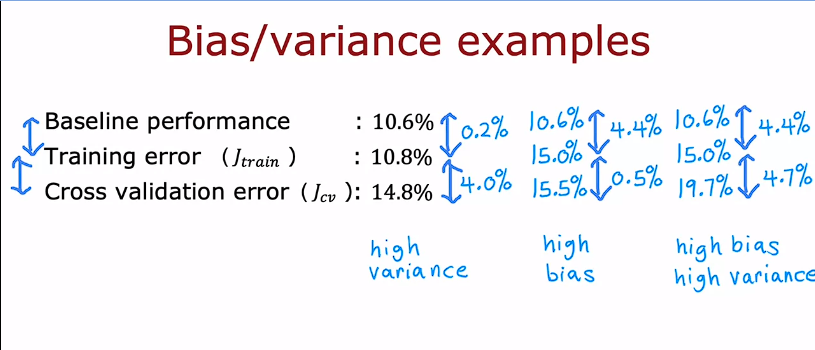 Bias/variance examples
Baseline performance : 10.6% 0.2% 10.6% 4.4% 10.6% 4.4%
Training error (J_train) : 10.8% 15.0% 15.0%
Cross validation error (J_cv): 14.8% 4.0% 15.5% 0.5% 19.7% 4.7%
high high high bias
variance bias high variance